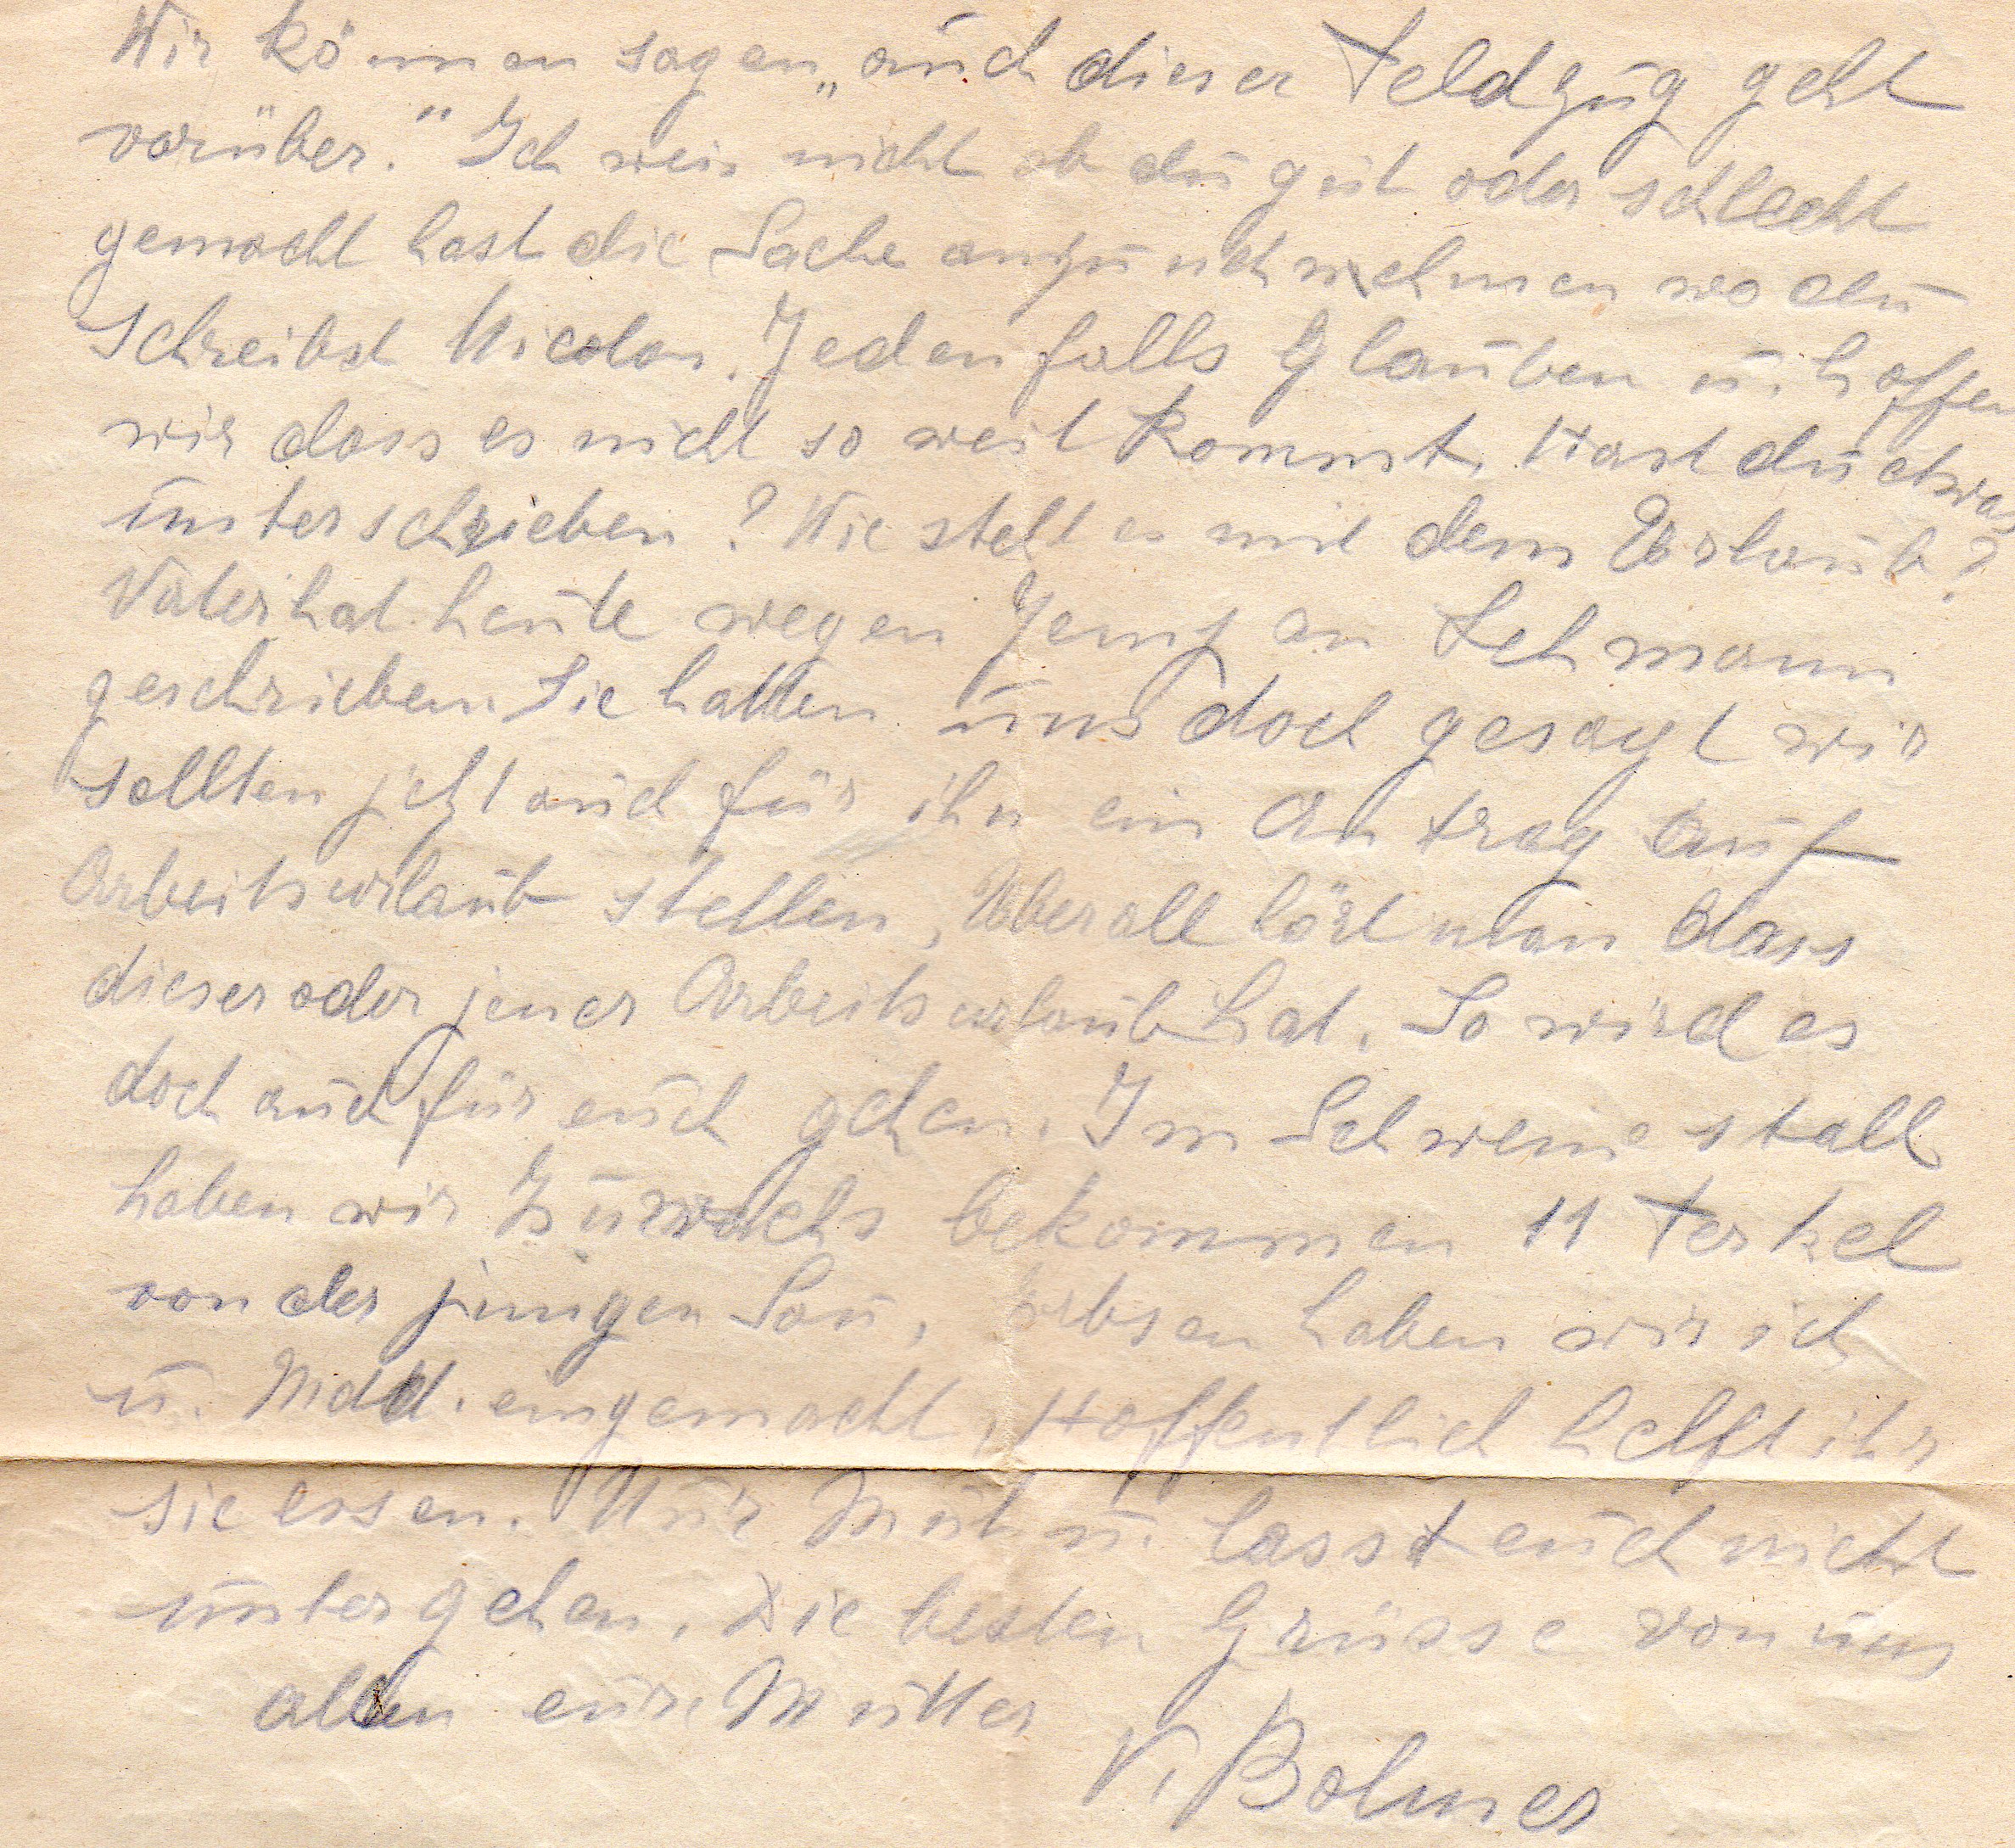 Wir können sagen „auch dieser Feldzug geht
vorüber." Ich weis nicht ob du gut oder schlecht
gemacht hast die Sache anzunehmen wo du
schreibst Nicolas. Jedenfalls Glauben u. hoffen
wir dass es nicht so weit kommt. Hast du etwas
unterschrieben? Wie steht es mit dem Urlaub?
Vater hat heute wegen Jemp an Lehmann
geschrieben. Sie hatten uns doch gesagt wir
sollten jetzt auch für ihn ein Antrag auf
Arbeitsurlaub stellen, Überall hört man dass
dieser oder jener Arbeitsurlaub hat. So wird es
doch auch für euch gehen. Im Schweinestall
haben wir Zuwachs bekommen 11 Ferkel
von der jungen Sau, Erbsen haben wir ich
u. Madd. eingemacht, Hoffentlich helft ihr
sie essen. Nur Mut u. lasst euch nicht
untergehen. Die besten Grüsse von uns
allen eure Mutter
V. Bolmer